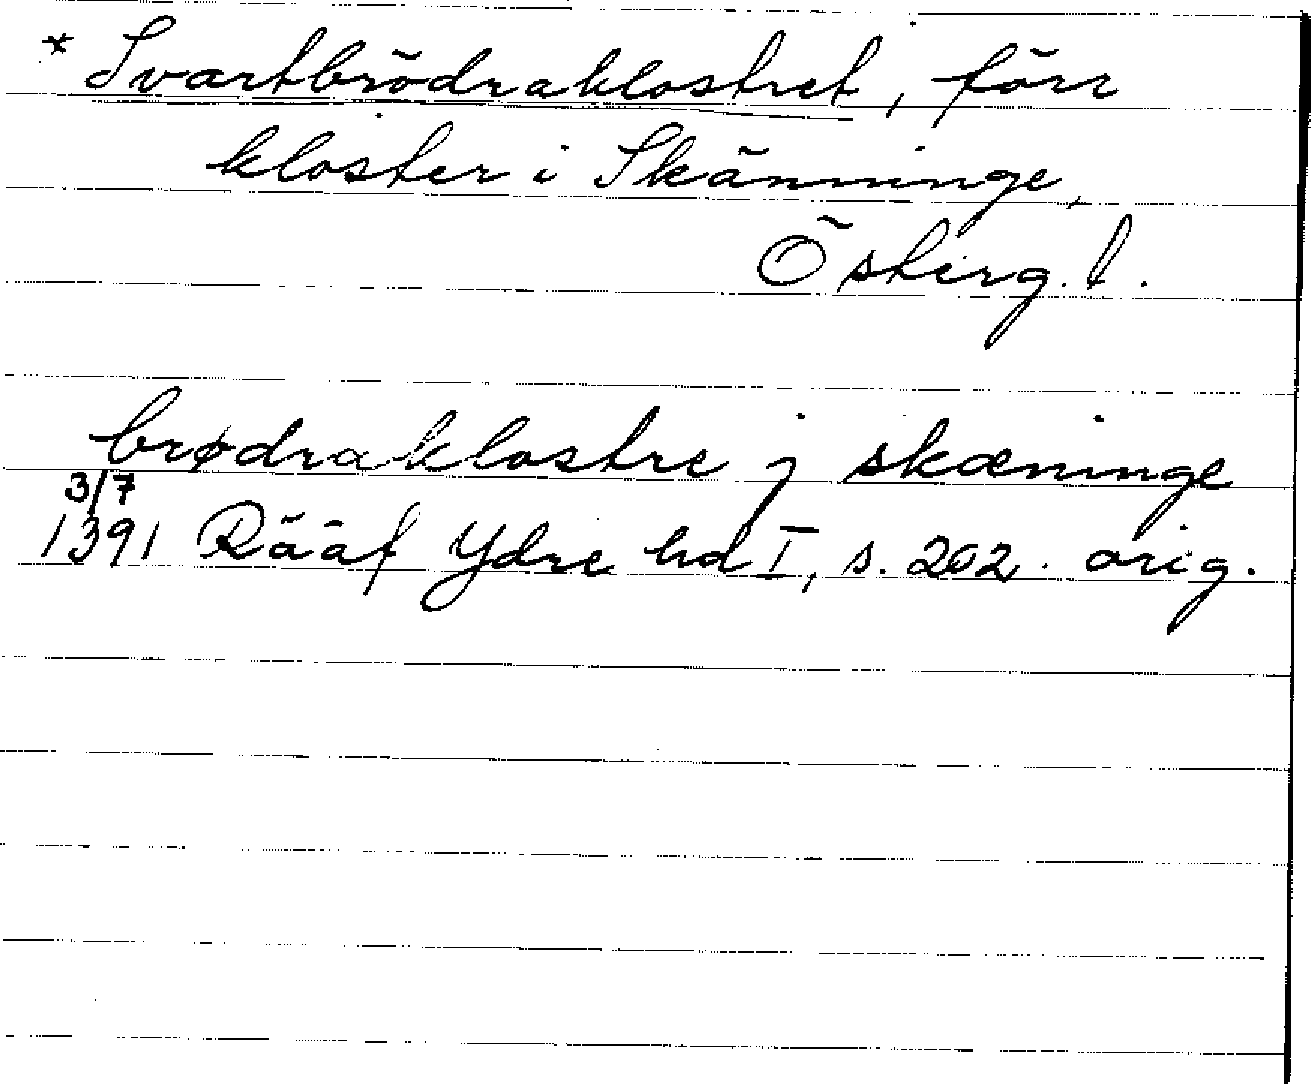 * Svartbrödraklostret, förr
kloster i Skänninge,
Österg. l.
brødraklostre j skæninge
3/7
1391 Rääf Ydre hd I, s. 202. orig.